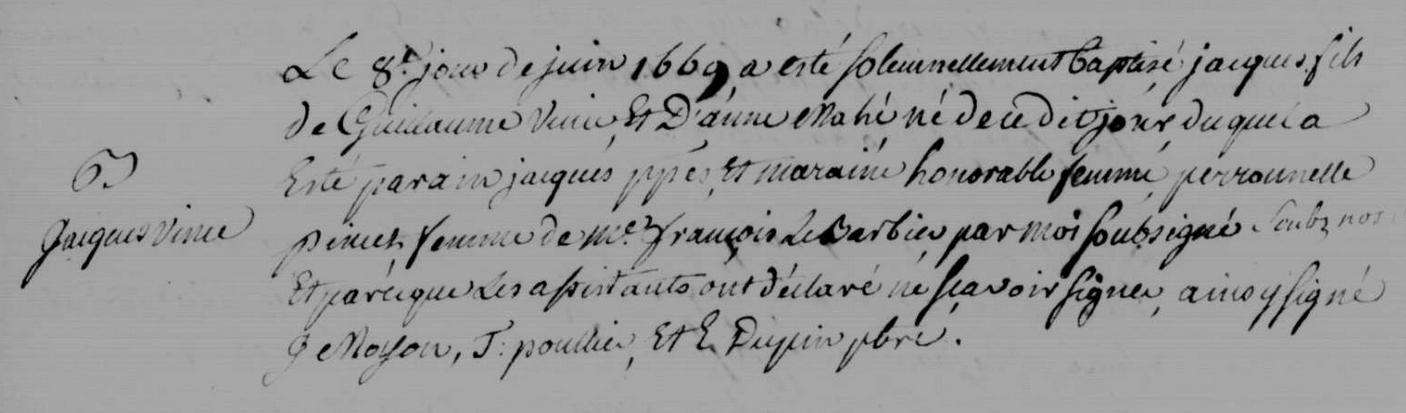 B
Jacques Vince
Le 8e jour de juin 1669 a esté solemnellement baptisé jacques fils
de Guillaume Vince, Et D'anne Mahé né de ce dit jour duquel a
Esté parain jacques Et maraine honorable femme, perronnelle
femme de Me françois Le Barbier par moi soubsigné Soubz nos
Et parceque Les assistants ont déclaré ne sçavoir signer, ainsy signé
Moyon, Et E Dupin pbre.